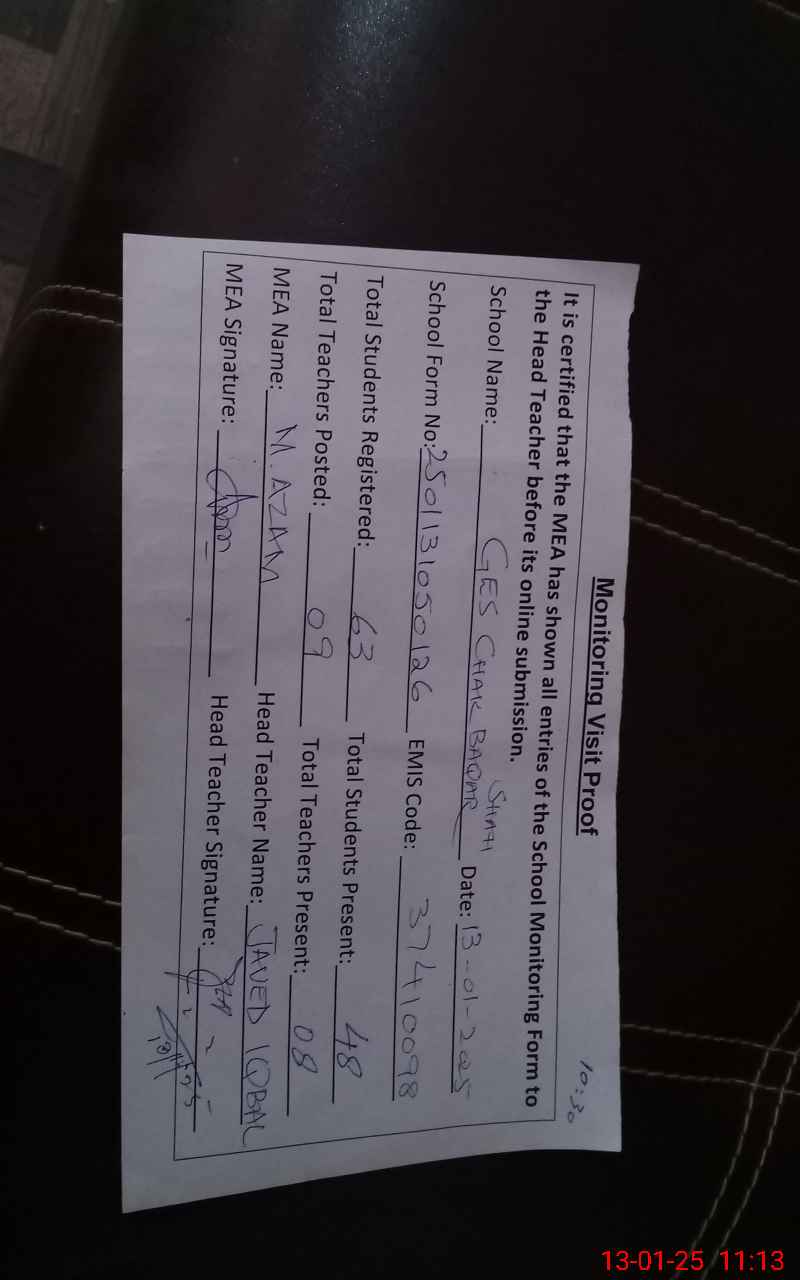 10:30
Monitoring Visit Proof
It is certified that the MEA has shown all entries of the School Monitoring Form to
the Head Teacher before its online submission.
School Name: GES CHAK BAQAR SHAH Date: 13-01-2025
School Form No: 2501131050126 EMIS Code: 37410098
Total Students Registered: 63 Total Students Present: 48
Total Teachers Posted: 09 Total Teachers Present: 08
MEA Name: M. AZAM Head Teacher Name: JAVED IQBAL
MEA Signature: Head Teacher Signature:
13-01-25 11:13